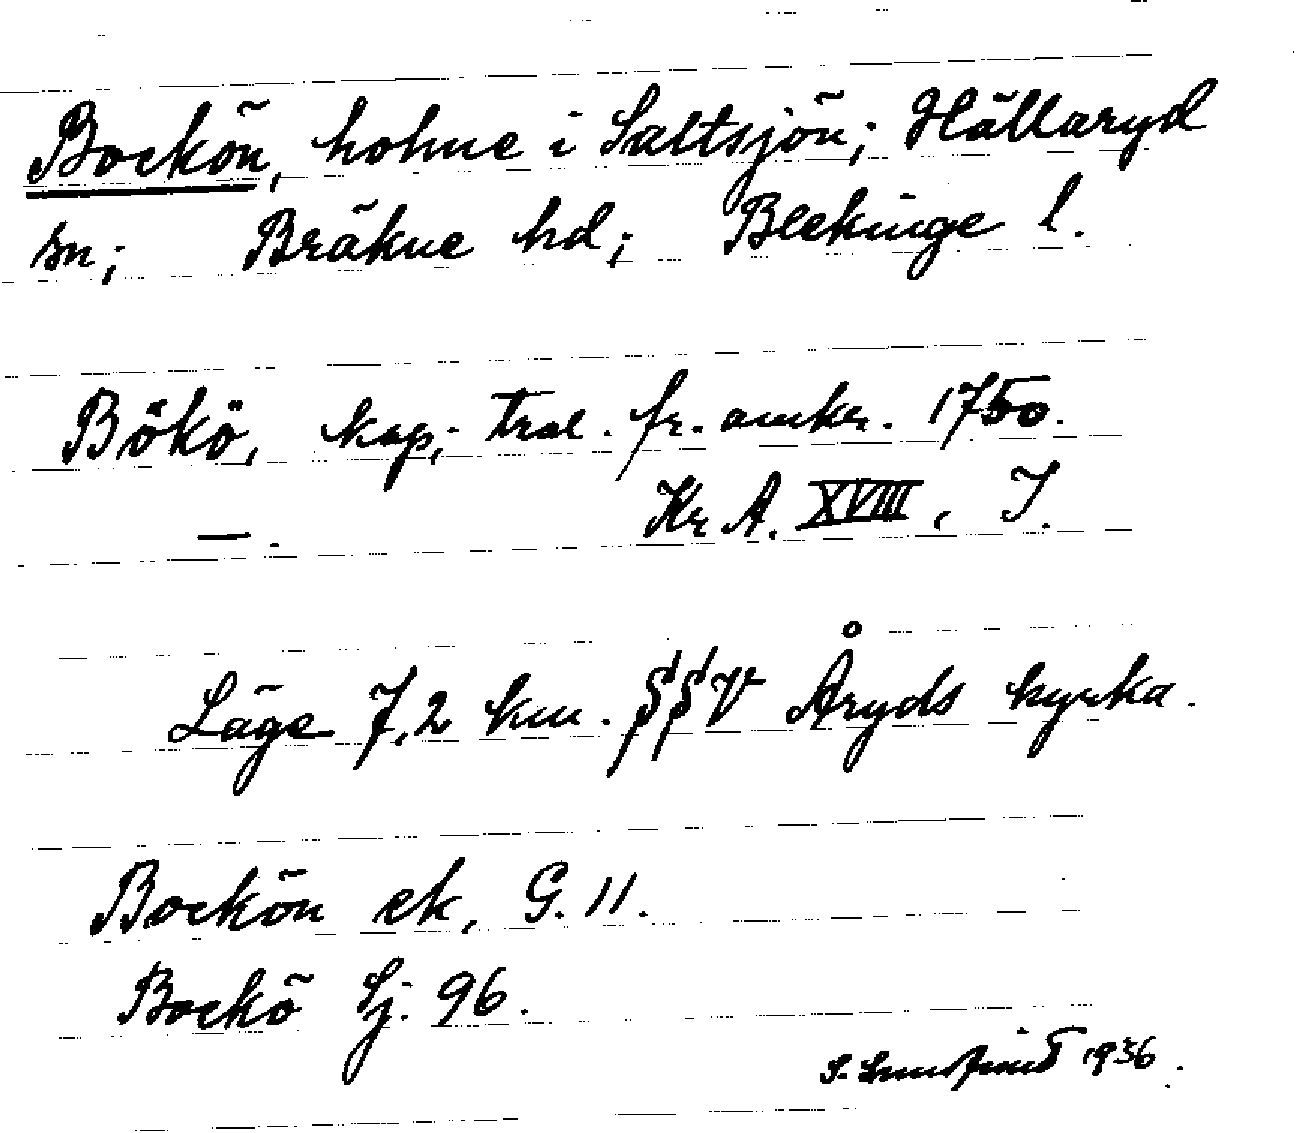 Bockön, holme i Saltsjön; Hällaryd
sn; Bräkne hd; Blekinge l.
Bökö, kop, tral. fr. omkr. 1750.
—. Kr A. XVIII, I.
Läge 7,2 km. SSV Åryds kyrka.
Bockön ek, G. 11.
Bockö Sj. 96.
S. 1936.